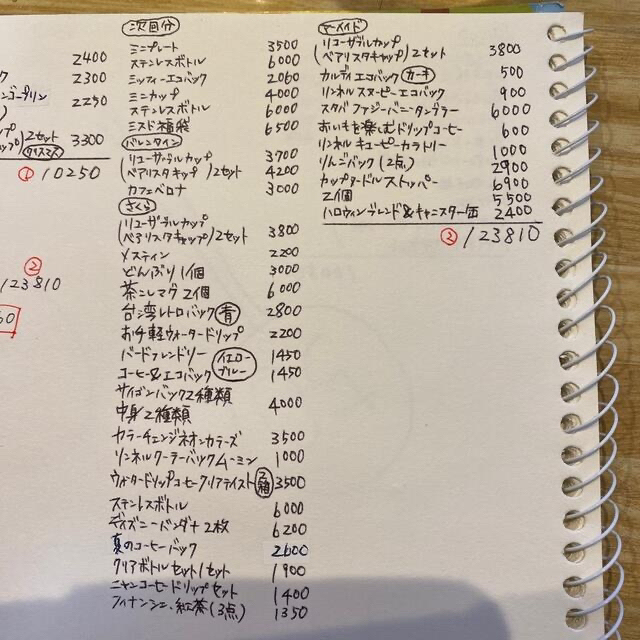 2400
ク 2300
ンゴープリン 2250
)
ップ
ップ)2セット 3300
クリスマス
① 10250
② 123810
60
次回分
ミニプレート 3500
ステンレスボトル 6000
ミッフィーエコバック 2060
ミニカップ 4000
ステンレスボトル 6000
ミスド福袋 6500
バレンタイン
(リューザブルカップ 3700
ベアリスタキャップ)2セット 4200
カフェベロナ 3000
さくら
(リユーザブルカップ
ベアリスタキャップ)2セット 3800
メスティン 2200
どんぶり1個 3000
茶こしマグ2個 6000
台湾レトロバック 青 2800
お手軽ウォータードリップ 2200
バードフレンドリー イエロー 1450
コーヒー&エコバック ブルー 1450
サイゴンバック2種類
中身2種類 4000
カラーチェンジネオンカラーズ 3500
リンネルクーラーバックムーミン 1000
ウォータードリップコーヒークリアテイスト 2箱 3500
ステンレスボトル 6000
ディズニーバンダナ2枚 6200
真のコーヒーバック 2600
クリアボトルセット1セット 1900
ニャンコーヒードリップセット 1400
フィナンシェ、紅茶(3点) 1350
マーメイド
(リユーザブルカップ
ベアリスタキャップ)2セット 3800
カルディエコバック カーキ 500
リンネルスヌーピーエコバック 900
スタバファジーバニータンブラー 6000
おいもを楽しむドリップコーヒー 600
リンネルキューピーカラトリー 1000
りんごバック(2点) 2900
カップヌードルストッパー 6900
2個 5500
ハロウィンブレンド&キャニスター缶 2400
② 123810